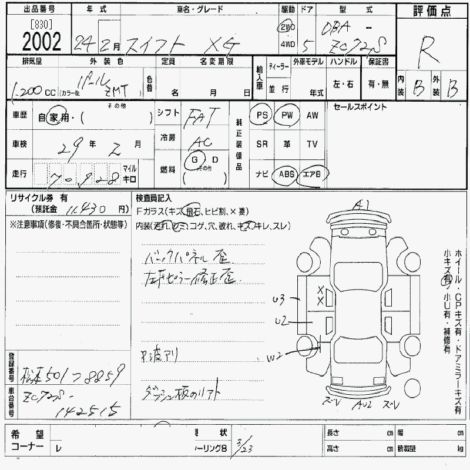 出品番号 年式 車名・グレード 駆動 ドア 型式 評価点
[830]
2002 24年2月 スイフト XG 2WD 4WD 5 DBA- ZC72S R
排気量 外装色 色替 定員 名変期限 輸入車 ディーラー 並行 外車モデル ハンドル 保証書 内装 外装
1,200cc パール ZMT 名 月 日 年式 左・右 有・無 B B
車歴 自家用・( ) その他 シフト FAT 純正装備品 PS PW AW セールスポイント
車検 29年2月 冷房 AC SR 革 TV
走行 70,928 マイル キロ 燃料 G D その他( ) ナビ ABS エアB
リサイクル券 有
(預託金 11,430 円)
※注意事項(修復・不具合箇所・状態等)
検査員記入
Fガラス(キズ、飛石、ヒビ割、×要)
内装(汚れ、シミ、コゲ、穴、破れ、キズ、キレ、スレ)
バックパネル 歪
左右ピラー修正歪
下廻サリ
ダッシュ板のリフト
A1
U3
U2
W2
ズーレ AU2 ズーレ
ホイール・CPキズ有・ドアミラーキズ有
小キズ有・小U有・補修有
登録番号 松本501つ8859
車台番号 ZC72S-142515
希望コーナー レ 現状 ーリングB 3/23 長さ cm 幅 cm
高さ cm 積載量 kg